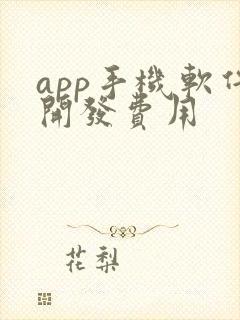 app手機軟件
開發費用
花梨